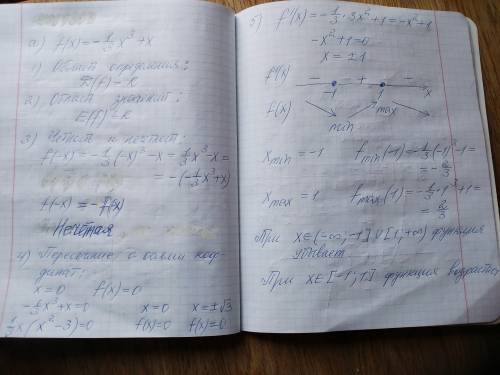 а) f(x) = -1/3 x³ + x
1) Область определения:
D(f) - R
2) Область значений:
E(f) - R
3) Четность и нечетност:
f(-x) = -1/3 (-x)³ - x = 1/3 x³ - x =
= -(-1/3 x³ + x)
f(-x) = -f(x)
Нечётная
4) Пересечение с осями коор
динат:
x = 0 f(x) = 0
-1/3 x³ + x = 0 x = 0 x = ±√3
1/3 x (x² - 3) = 0 f(x) = 0 f(x) = 0
5) f'(x) = -1/3 · 3x² + 1 = -x² + 1
-x² + 1 = 0
x = ±1
f'(x) - + -
-1 1 x
f(x) max
min
x min = -1 f min (-1) = -1/3 (-1)³ - 1 =
= -2/3
x max = 1 f max (1) = -1/3 · 1³ + 1 =
= 2/3
При x ∈ (-∞; -1] ∪ [1; +∞) функция
убывает
При x ∈ [-1; 1] функция возрастает